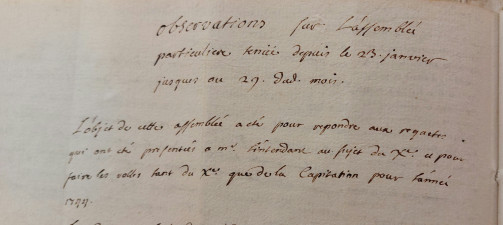 observations sur L'assemblée
particuliere tenüe depuis le 23. janvier
jusques au 29. dud. mois.
L'objet de cette assemblée a eté pour repondre aux requetes
qui ont été presentées a mr. L'intendant au sujet du Xe. et pour
faire les rolles tant du Xe. que de la Capitation pour l'année